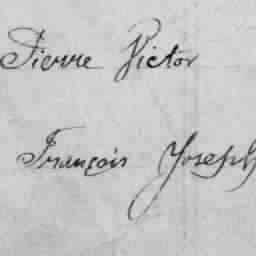 Pierre Victor
François Joseph